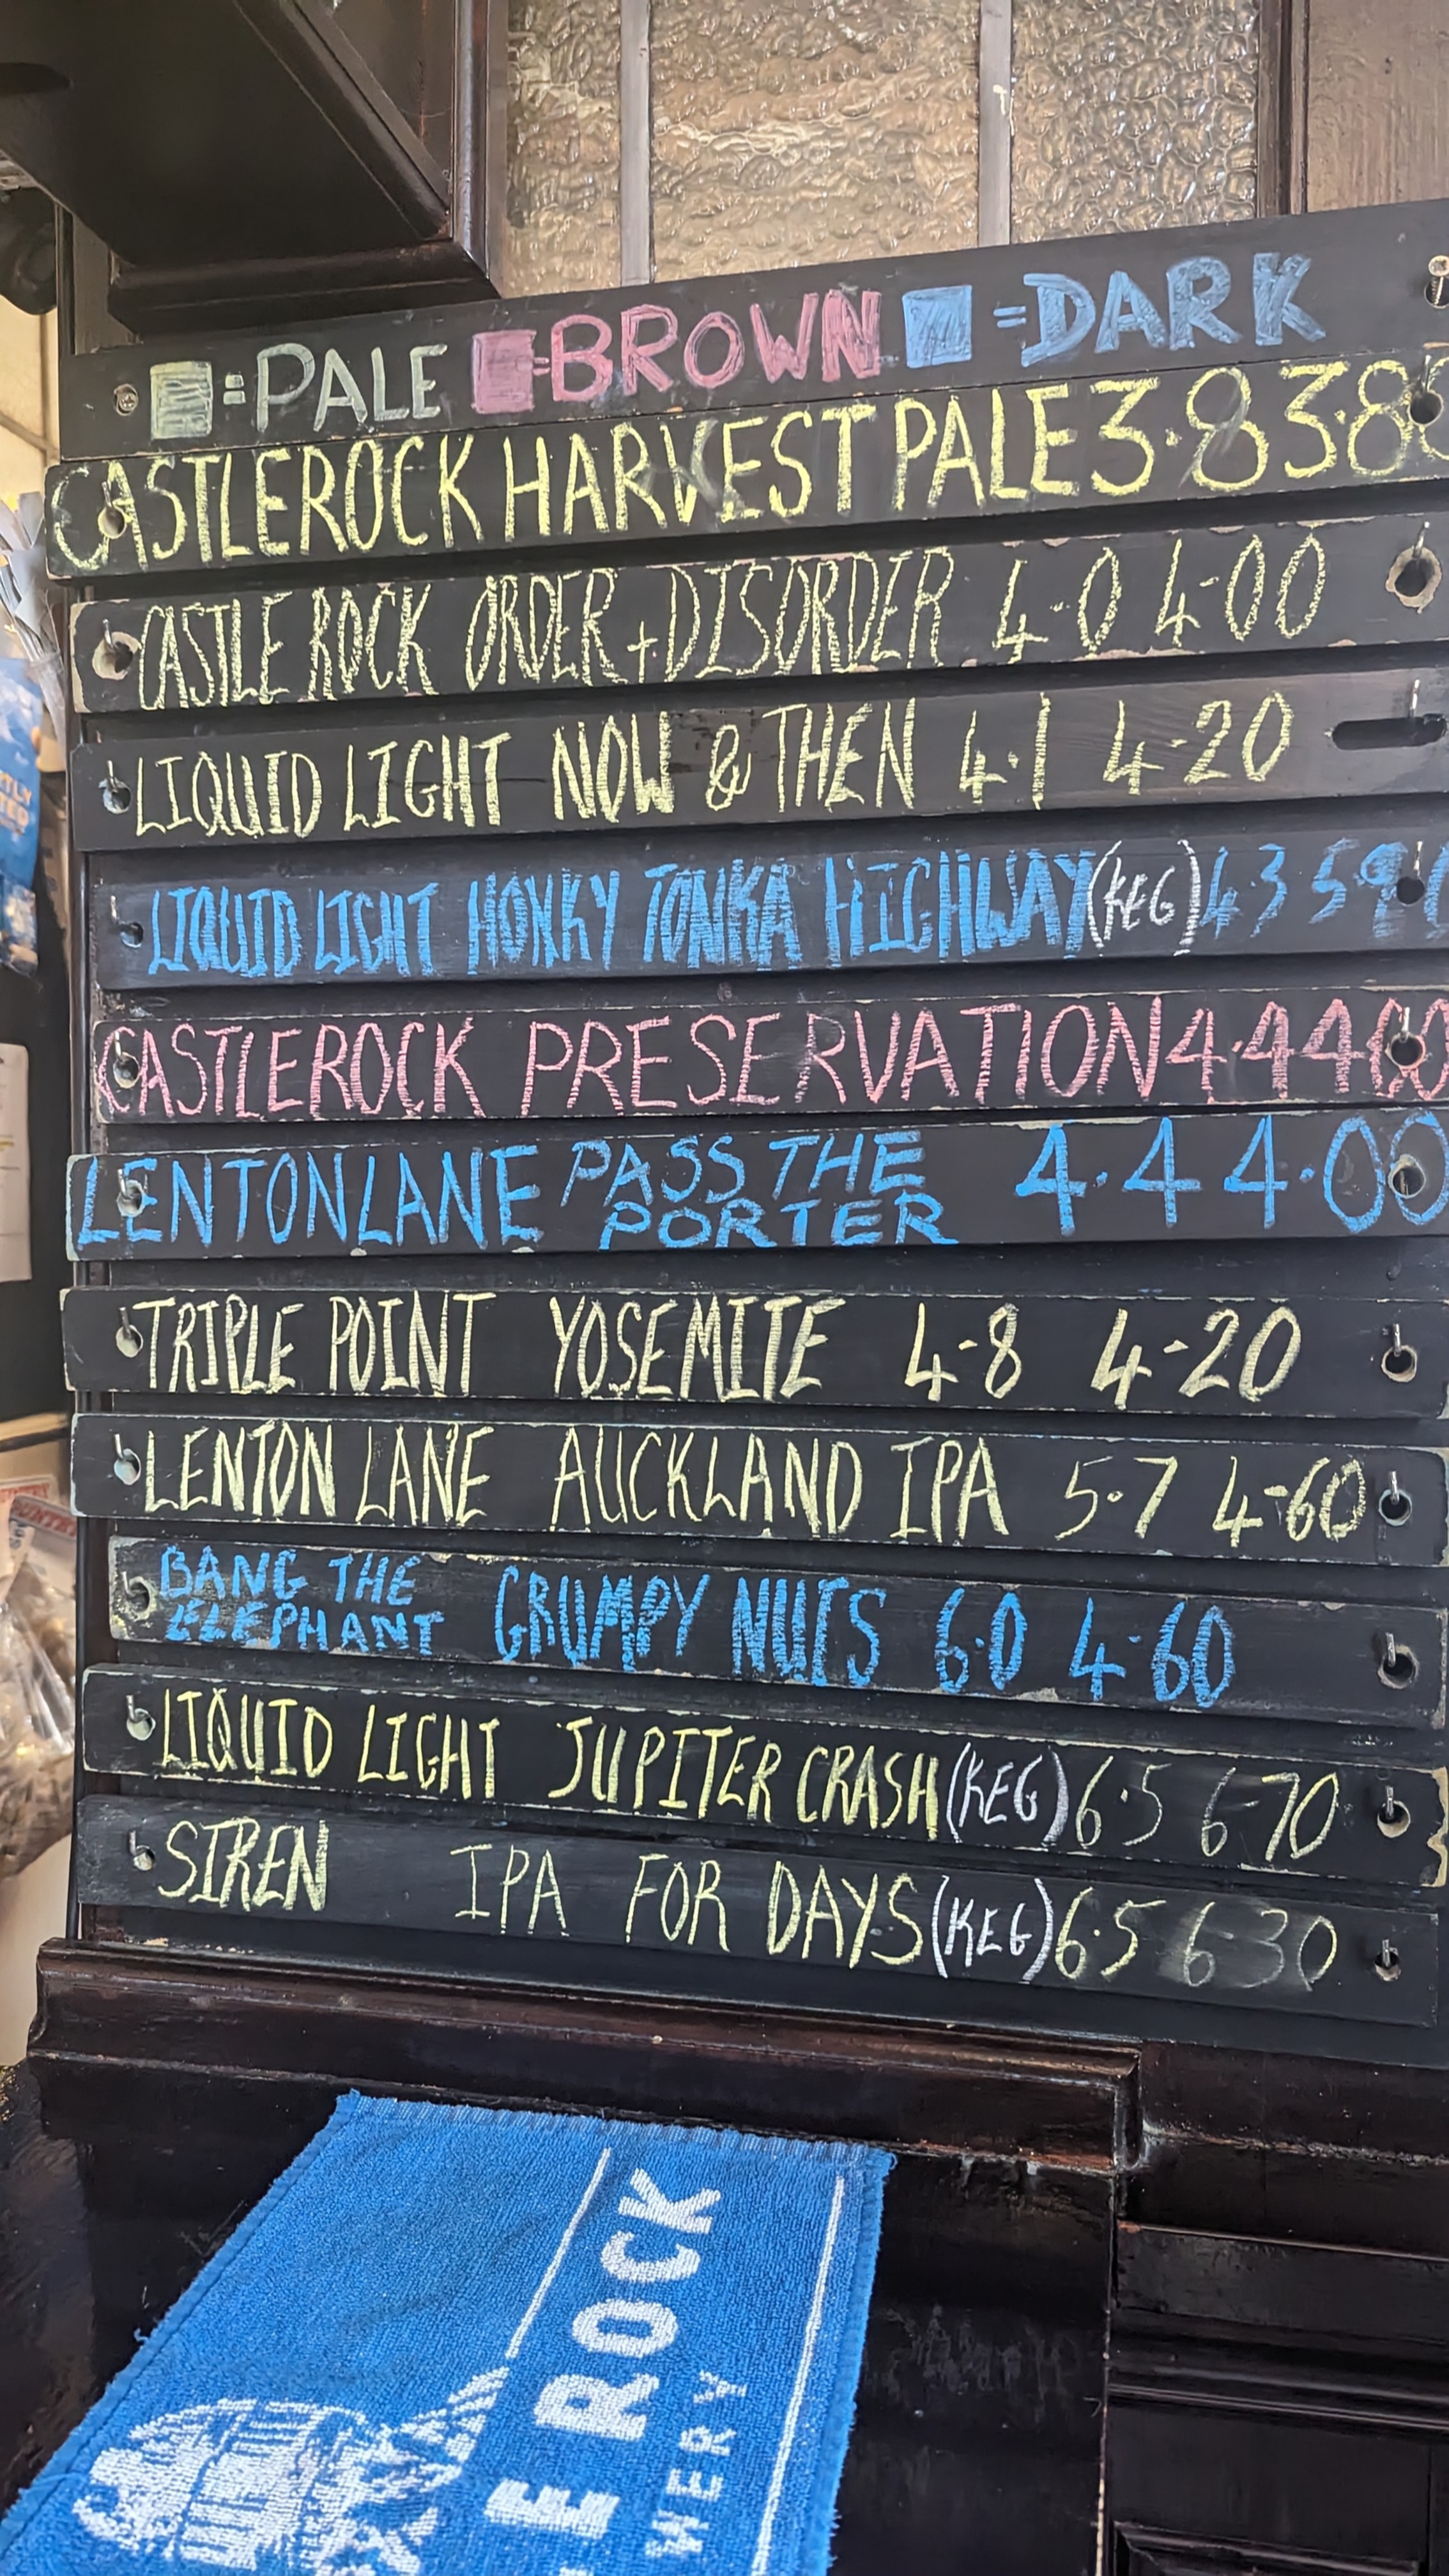 =PALE =BROWN =DARK
CASTLEROCK HARVEST PALE 3.8 3.80
CASTLE ROCK ORDER + DISORDER 4.0 4-00
LIQUID LIGHT NOW & THEN 4.1 4-20
LIQUID LIGHT HONKY TONKA HIGHWAY (KEG) 4.3 5.90
CASTLEROCK PRESERVATION 4.4 4.00
LENTON LANE PASS THE PORTER 4.4 4.00
TRIPLE POINT YOSEMITE 4-8 4-20
LENTON LANE AUCKLAND IPA 5.7 4-60
BANG THE ELEPHANT GRUMPY NUTS 6.0 4-60
LIQUID LIGHT JUPITER CRASH (KEG) 6.5 6-70
SIREN IPA FOR DAYS (KEG) 6.5 6-30
E ROCK
WERY